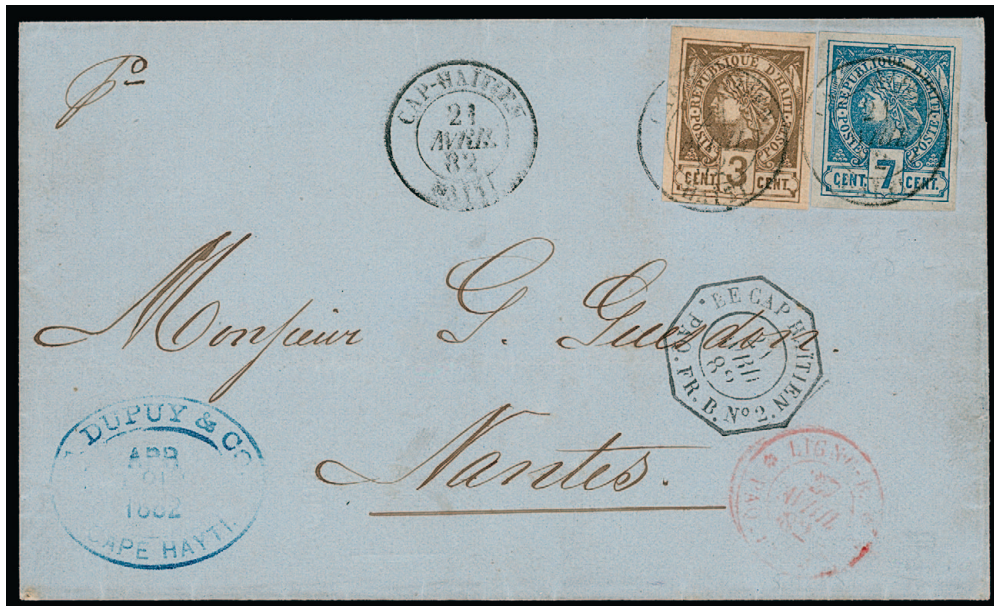 po
CAP-HAÏTIEN
21
AVRIL
82
HAITI
REPUBLIQUE D'HAITI
POSTES POSTE
CENT. 3 CENT.
REPUBLIQUE D'HAITI
POSTES POSTE
CENT. 7 CENT.
Monsieur G. Guesdon.
Nantes.
LE CAP HAÏTIEN
AVRIL
82
PAQ. FR. B. Nº 2.
DUPUY & CO
APR
21
1882
CAPE HAYTI.
LIGNE